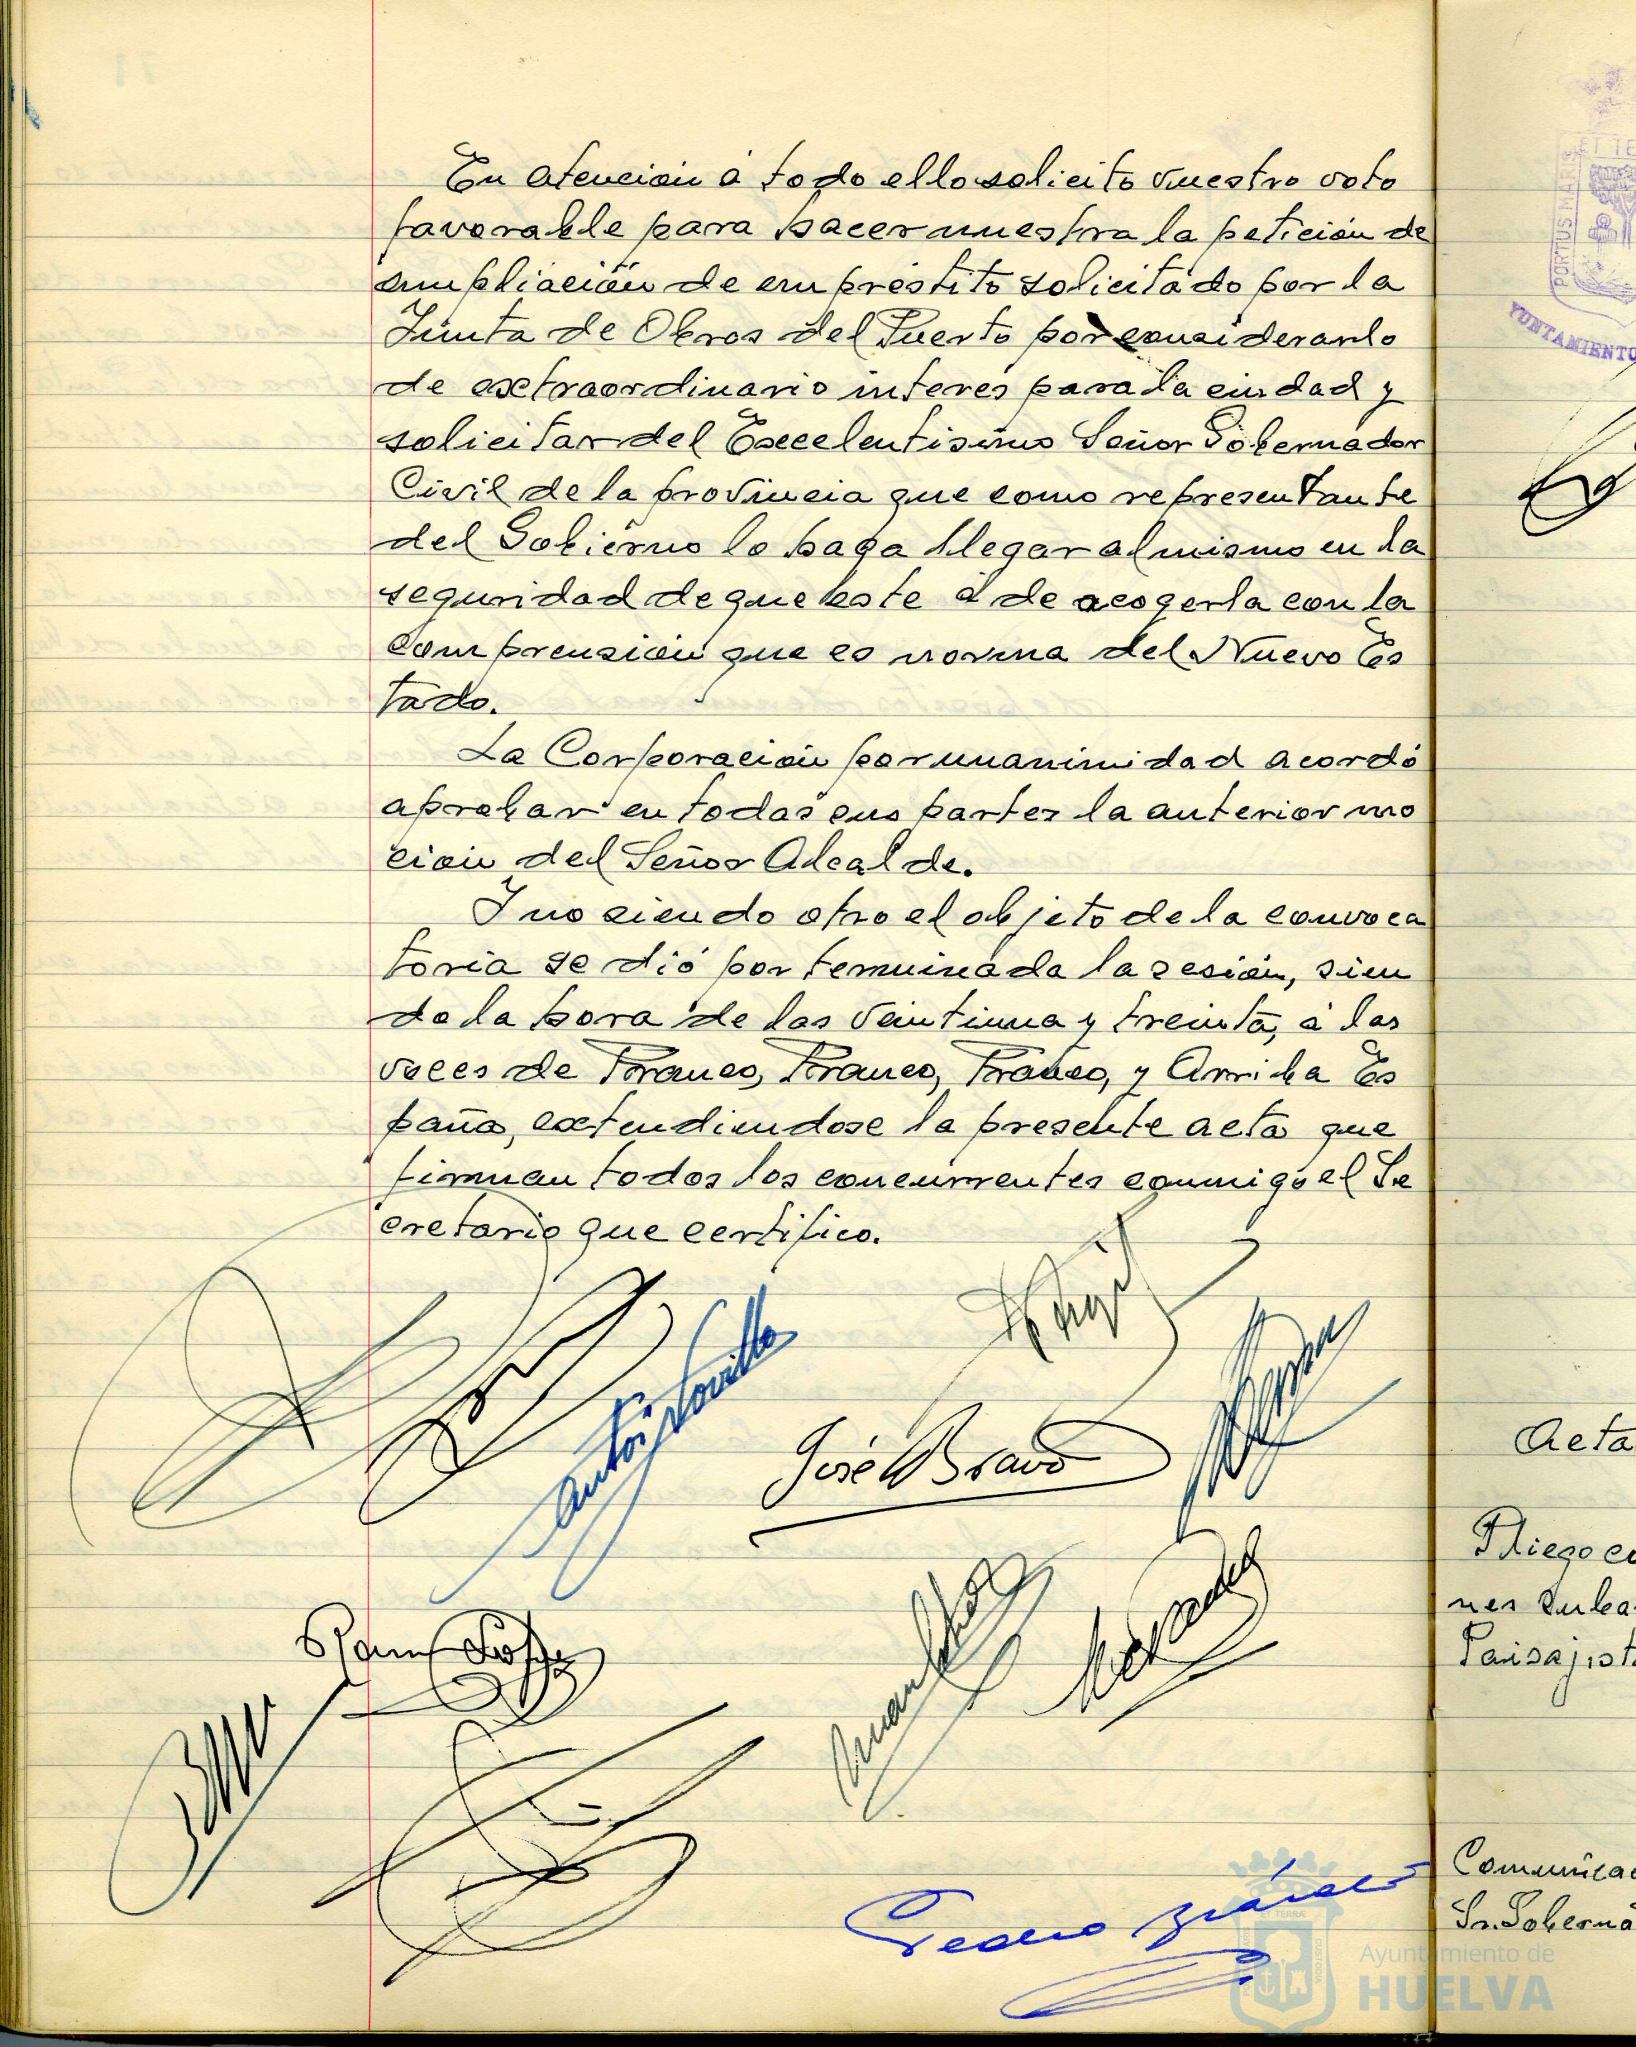 En atencion á todo ello solicito vuestro voto
favorable para hacer nuestra la petición de
ampliación de empréstito solicitado por la
Junta de Obras del Puerto por considerarlo
de extraordinario interés para la ciudad y
solicitar del Excelentisimo Señor Gobernador
Civil de la provincia que como representante
del Gobierno lo haga llegar al mismo en la
seguridad de que este á de acogerla con la
comprension que es norma del Nuevo Es
tado.
La Corporacion por unanimidad acordó
aprobar en todas sus partes la anterior mo
cion del Señor Alcalde.
Y no siendo otro el objeto de la convoca
toria se dió por terminada la sesión, sien
do la hora de las veintiuna y treinta, á las
voces de Franco, Franco, Franco, y Arriba Es
paña, extendiendose la presente acta que
firman todos los concurrentes conmigo el Se
cretario que certifico.
José Bravo
Pedro
Ayuntamiento de
HUELVA
PORTUS MARIS ET TE
YUNTAMIENTO
Acta
Pliego co
nes suba
Paisajist
Comunicac
Sr. Goberna